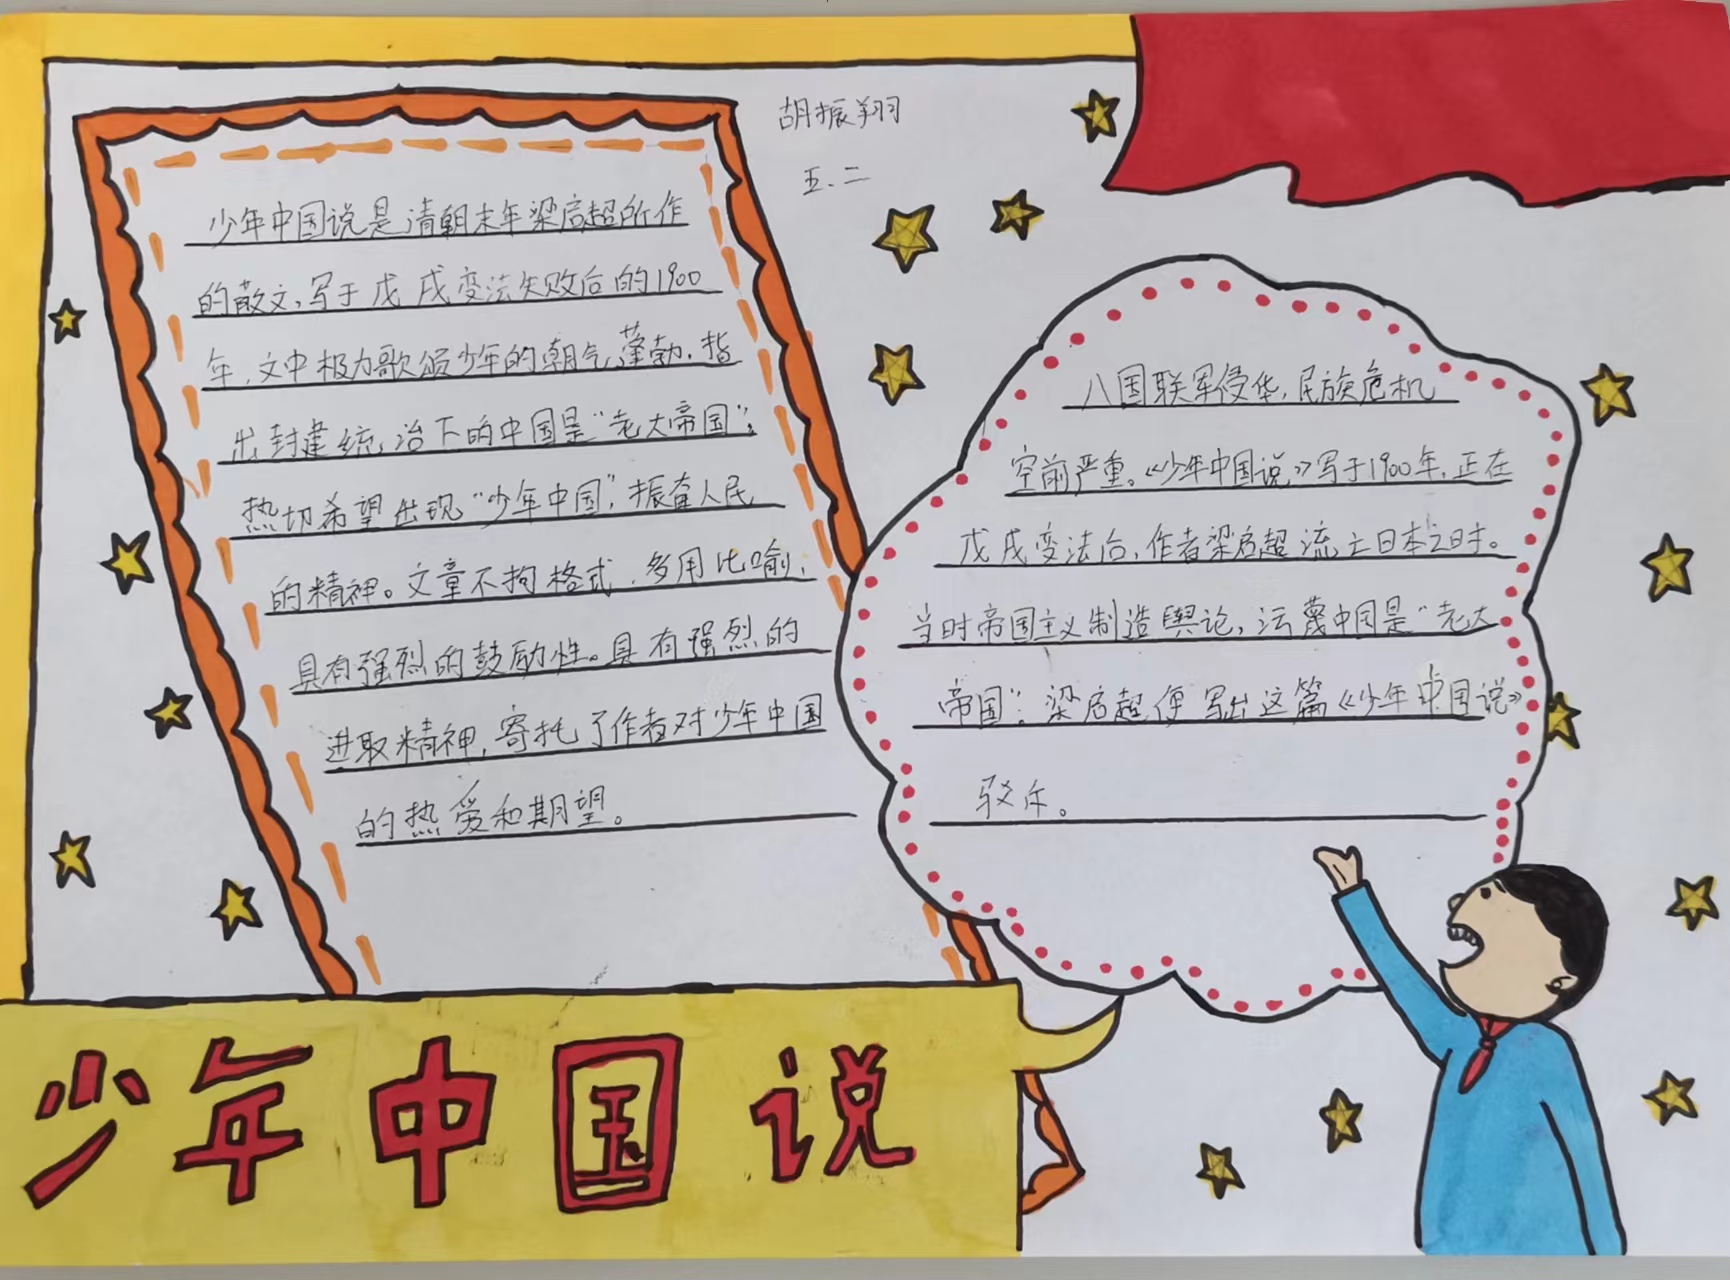 胡振翔
五.二
少年中国说是清朝末年梁启超所作
的散文,写于戊戌变法失败后的1900
年,文中极力歌颂少年的朝气蓬勃,指
出封建统治下的中国是“老大帝国”,
热切希望出现“少年中国”,振奋人民
的精神。文章不拘格式,多用比喻,
具有强烈的鼓励性。具有强烈的
进取精神,寄托了作者对少年中国
的热爱和期望。
八国联军侵华,民族危机
空前严重。《少年中国说》写于1900年,正在
戊戌变法后,作者梁启超流亡日本之时。
当时帝国主义制造舆论,污蔑中国是“老大
帝国”。梁启超便写出这篇《少年中国说》
驳斥。
少年中国说